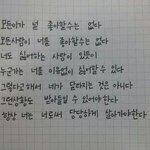 모든이가 널 좋아할수는 없다
모든사람이 너를 좋아할수는 없다
너도 싫어하는 사람이 있듯이
누군가는 너를 이유없이 싫어할수 있다
그렇다고해서 네가 달라지는 것은 아니다
그런상황도 받아들일 수 있어야한다
항상 너는 너로써 당당하게 살아가야한다